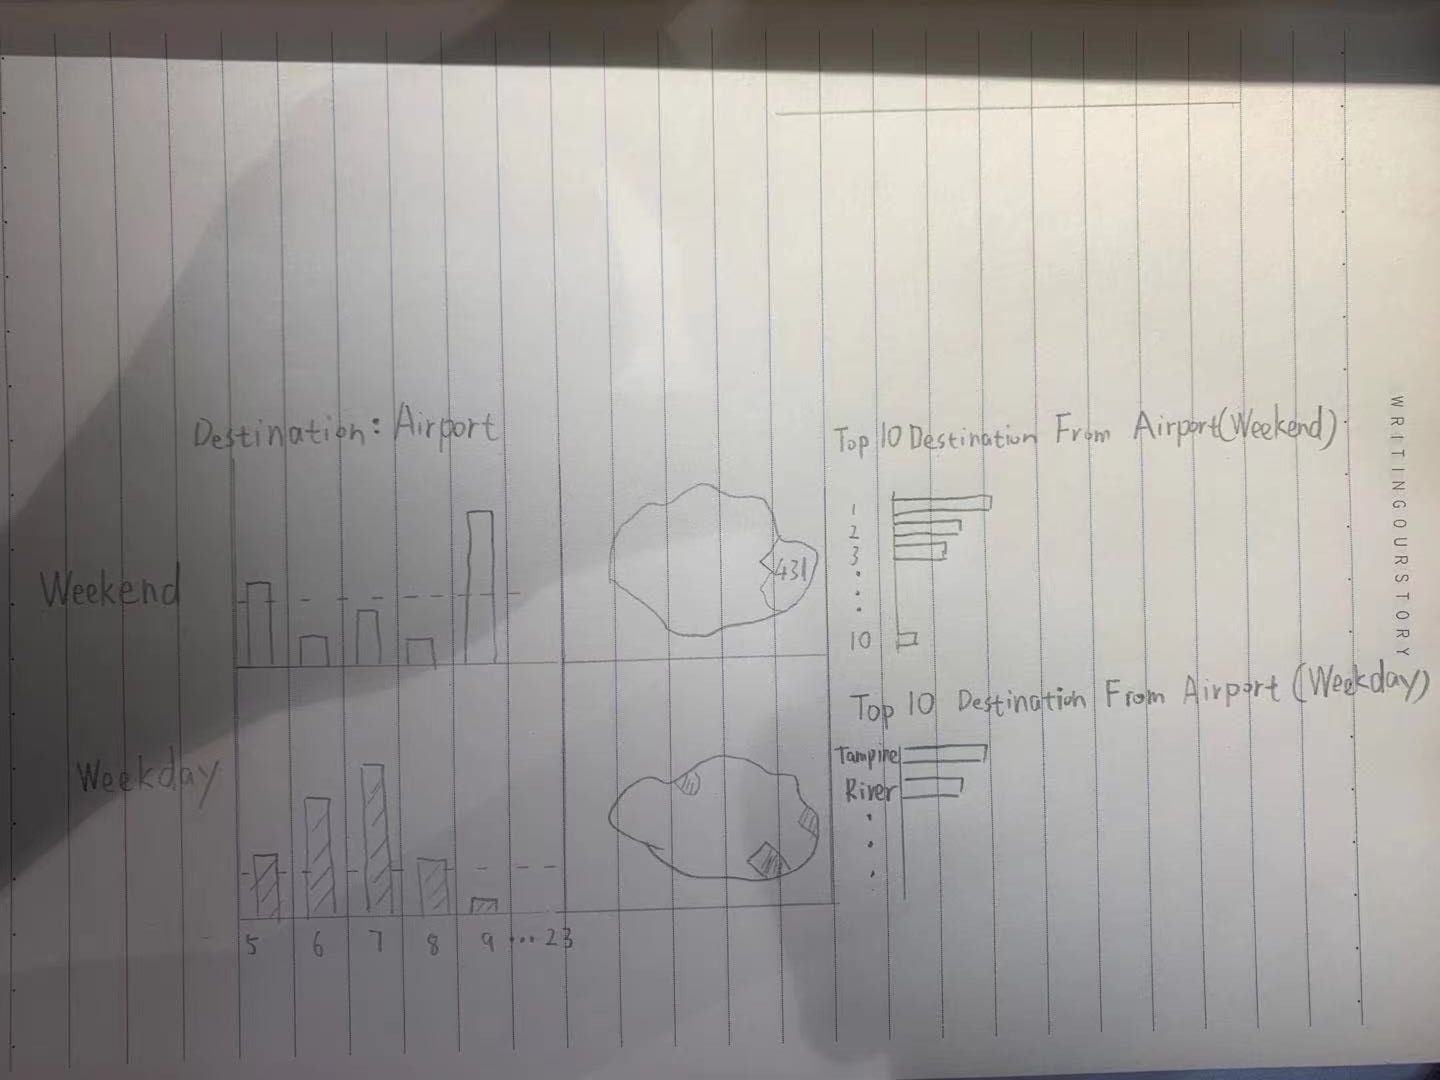 Destination: Airport
Weekend
431
Weekday
5 6 7 8 9 ... 23
Top 10 Destination From Airport (Weekend)
1
2
3
10
Top 10 Destination From Airport (Weekday)
Tampine
River
WRITINGOURSTORY